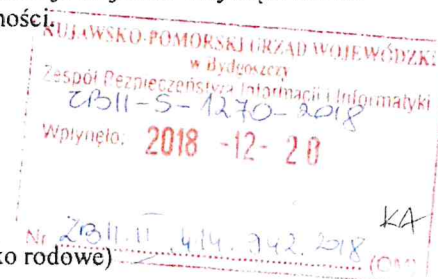 ności.
KUJAWSKO-POMORSKI URZĄD WOJEWÓDZKI
w Bydgoszczy
Zespół Bezpieczeństwa Informacji i Informatyki
ZBII-S-1270-2018
Wpłynęło: 2018 -12- 20
KA
Nr ZBII.II.414.342.2018
ko rodowe)